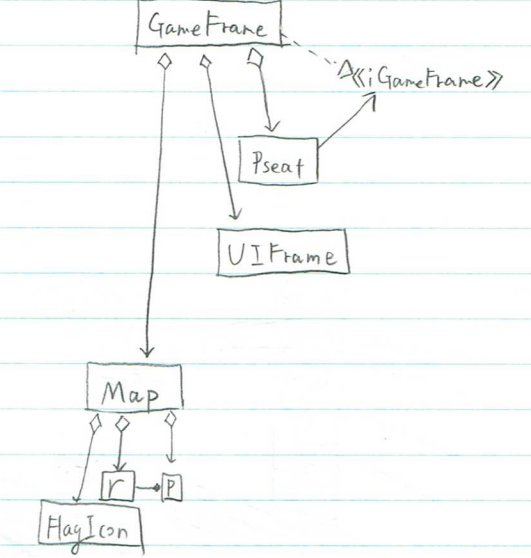 GameFrame
≪iGameFrame≫
Pseat
UIFrame
Map
r
P
FlagIcon